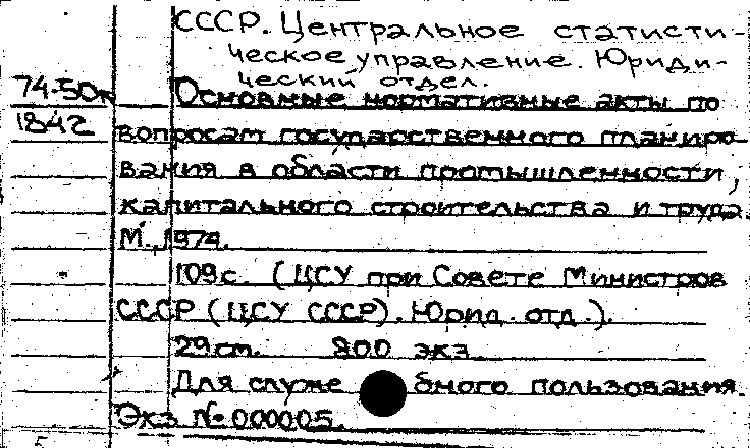 СССР. Центральное статисти-
ческое управление. Юриди-
ческий отдел.
74-50к Основные нормативные акты по
1842 вопросам государственного планиро
вания в области промышленности,
капитального строительства и труда.
М., 1974.
109с. (ЦСУ при Совете Министров
СССР (ЦСУ СССР). Юрид. отд.).
29см. 800 экз.
Для служебного пользования.
Экз № 000005.